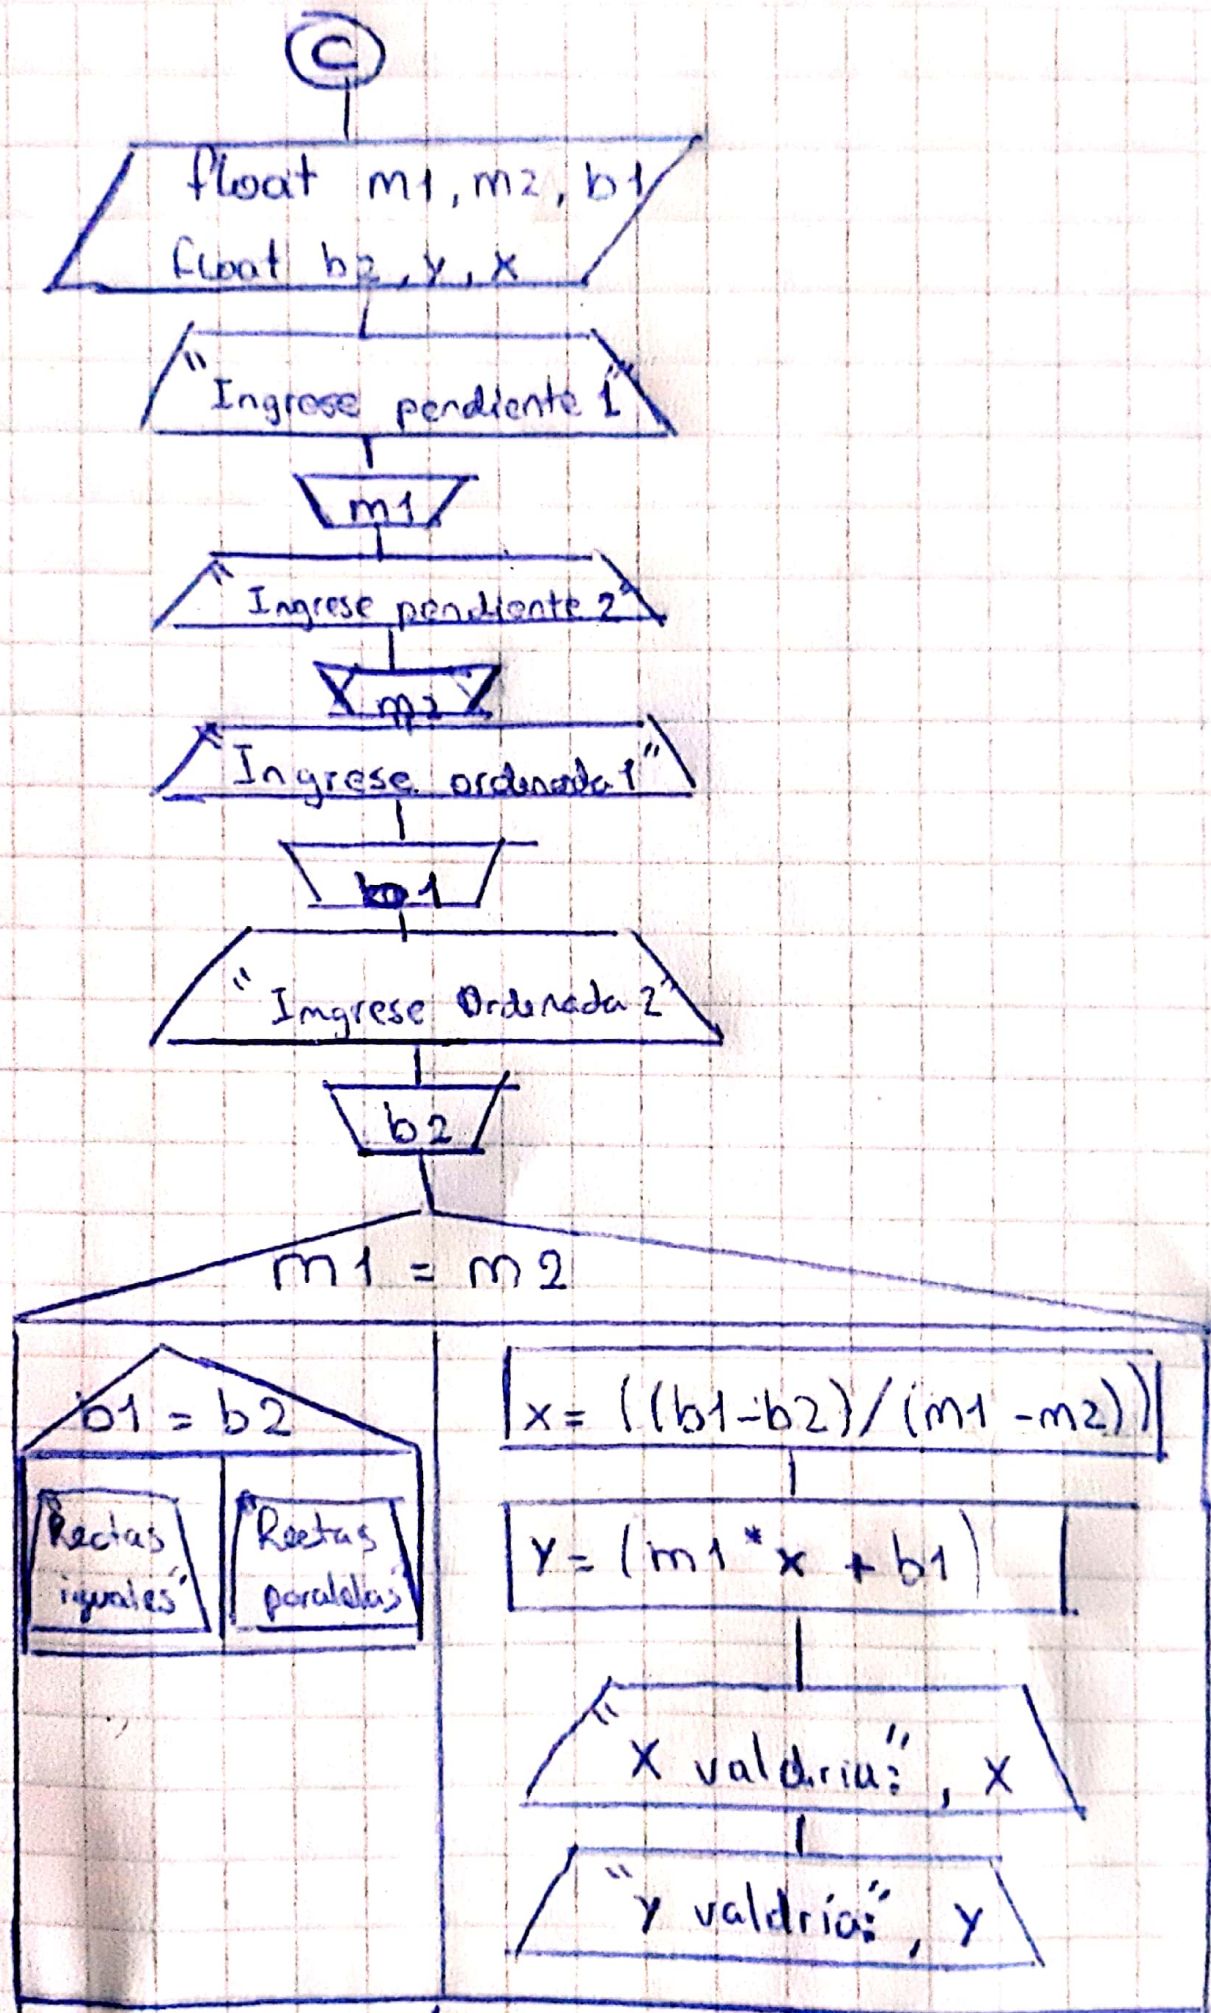 C
float m1, m2, b1
float b2, y, x
"Ingrese pendiente 1"
m1
"Ingrese pendiente 2"
m2
"Ingrese ordenada 1"
b1
"Ingrese Ordenada 2"
b2
m1 = m2
b1 = b2
"Rectas
iguales"
"Rectas
paralelas"
x = ((b1-b2)/(m1-m2))
Y = (m1*x + b1)
"X valdria:", X
"y valdría:", Y